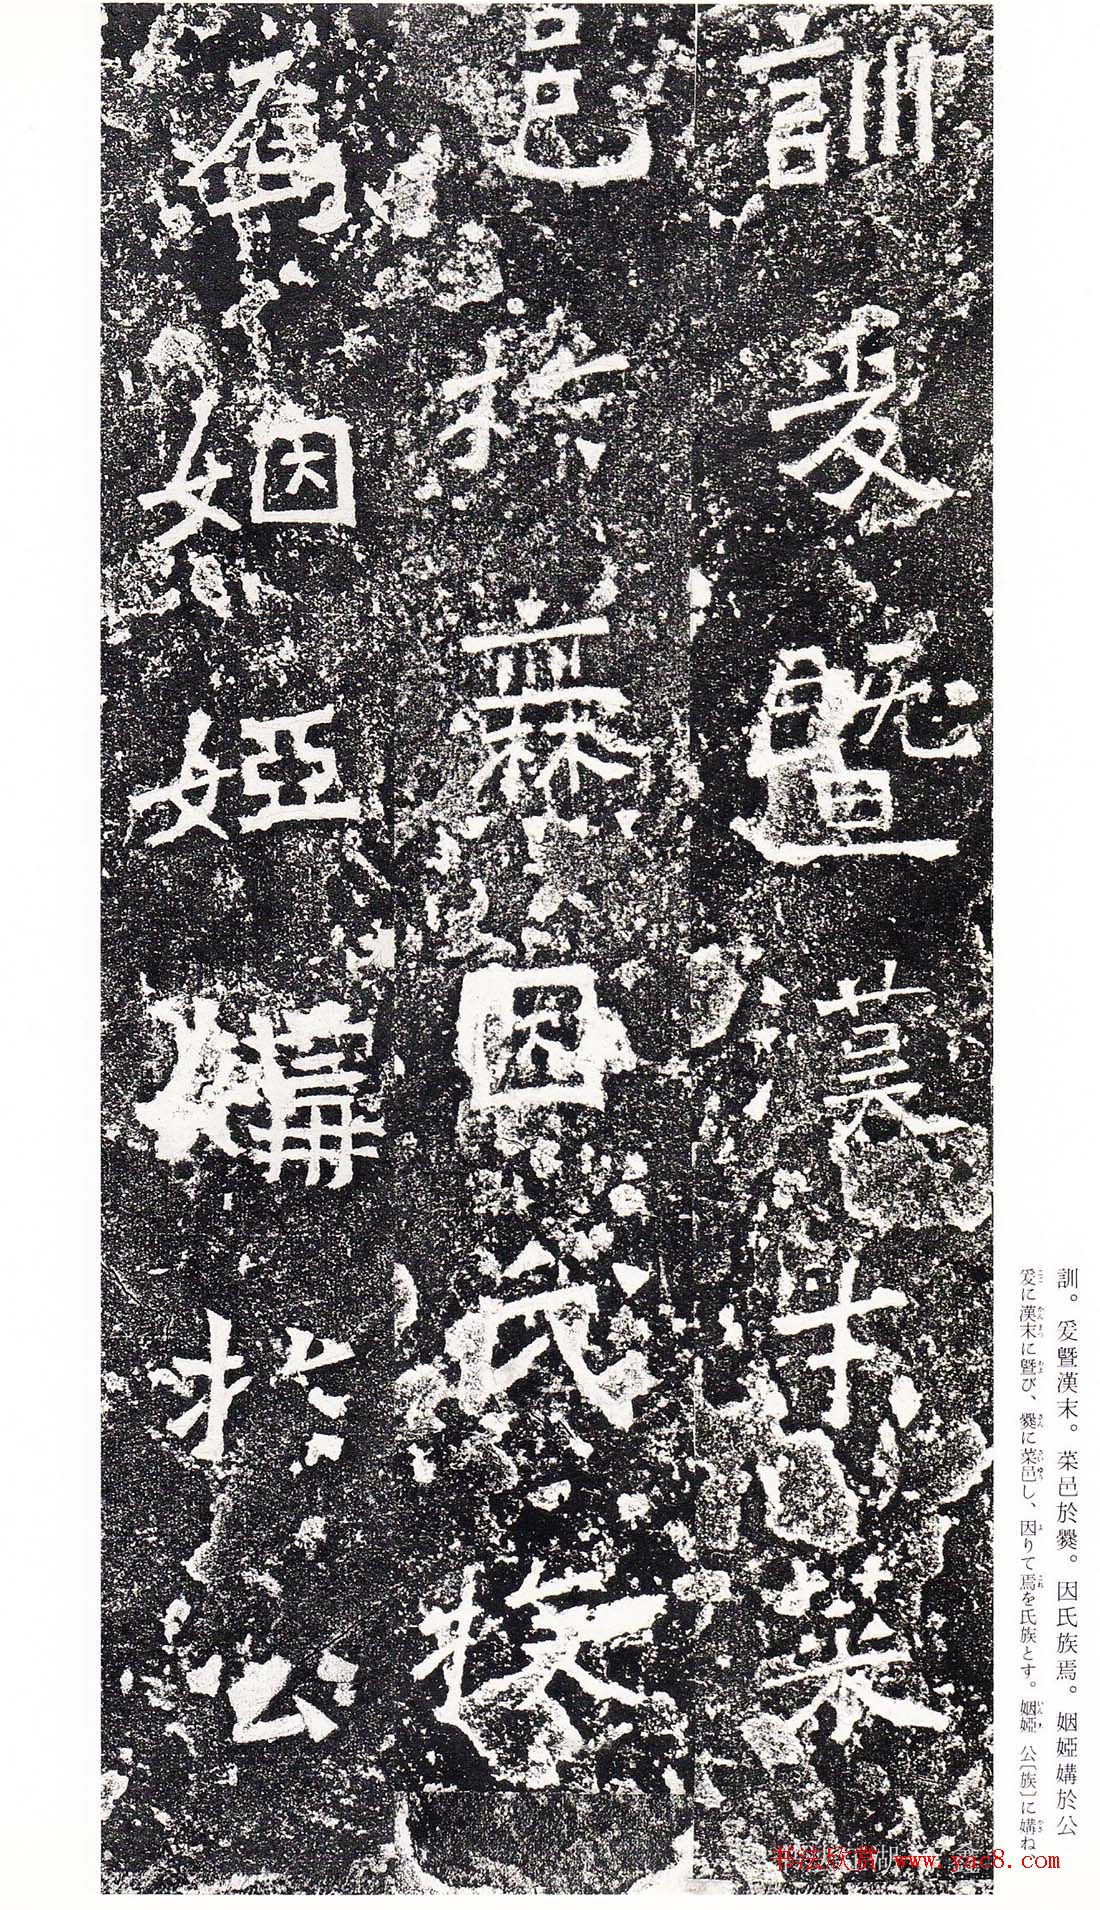 訓爰曁漢末菜
邑於爨因氏族
焉姻婭媾於公
訓。爰曁漢末。菜邑於爨。因氏族焉。姻婭媾於公
爰に漢末に曁び、爨に菜邑し、因りて焉を氏族とす。姻婭 公〔族〕に媾ね
书法欣赏 www.yac8.com